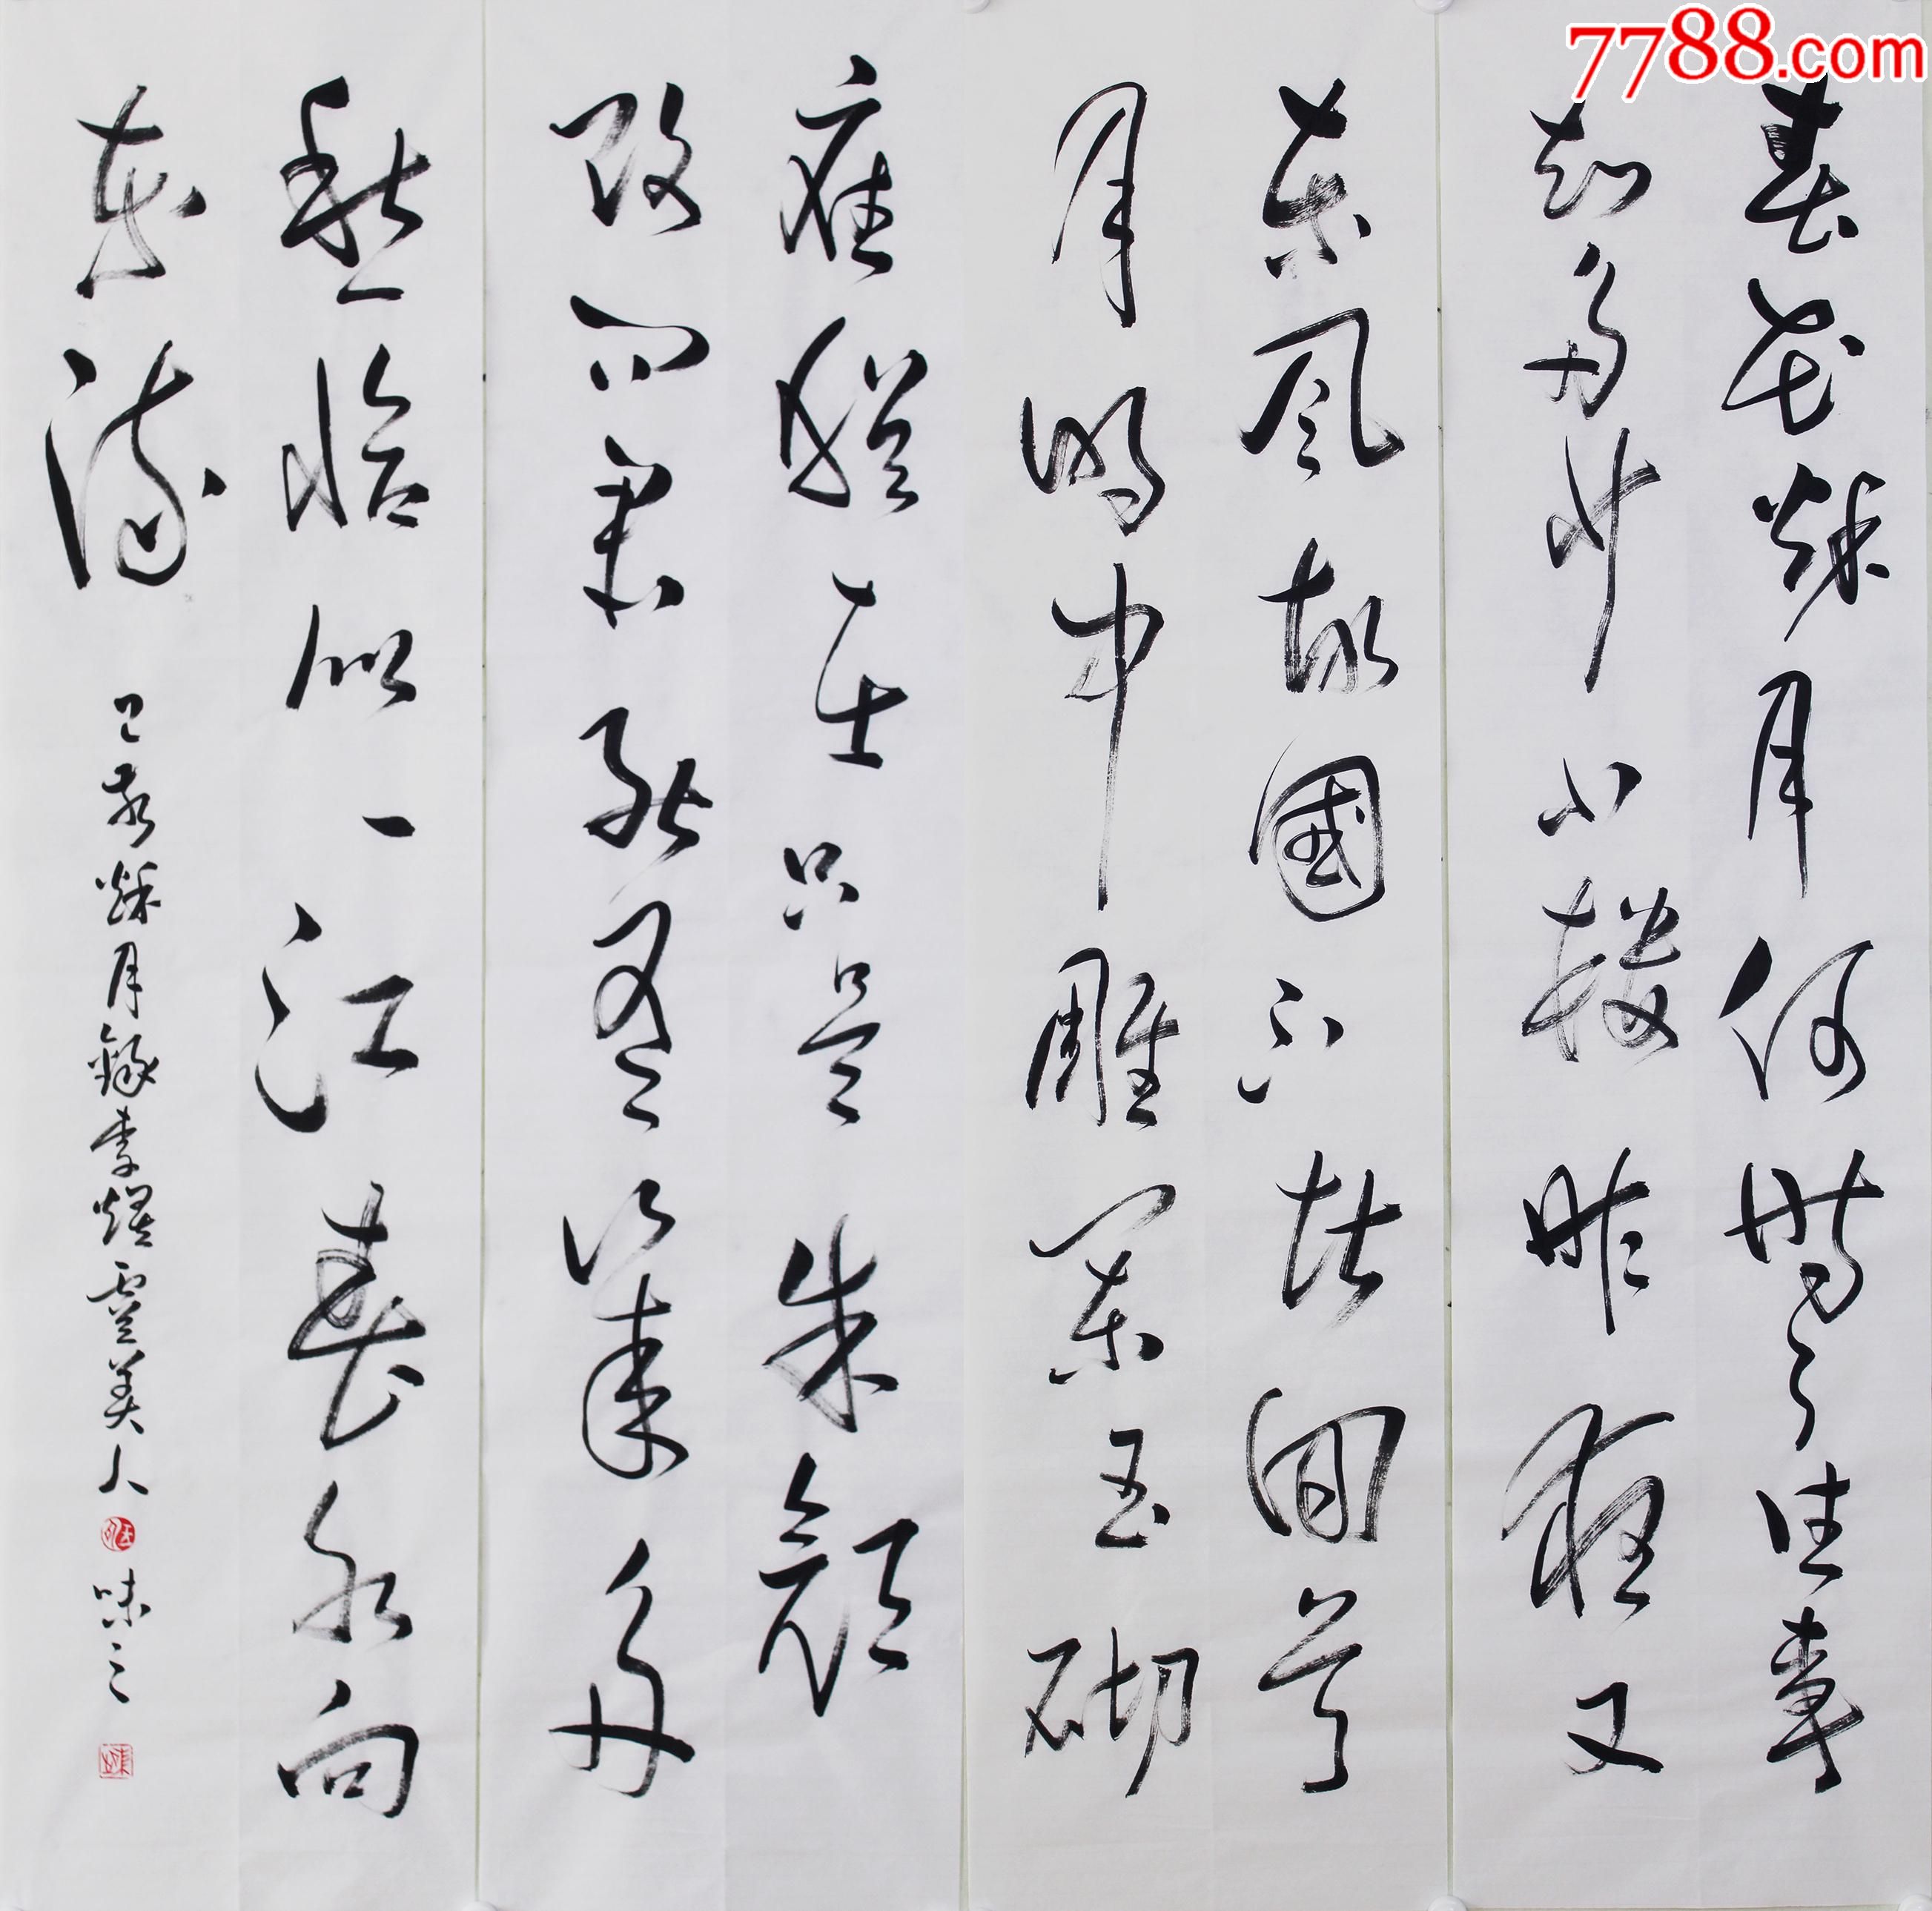 7788.com
春花秋月何時了往事
知多少小樓昨夜又
東風故國不堪回首
月明中雕闌玉砌
應猶在只是朱顏
改问君能有幾多
愁恰似一江春水向
東流
己亥秋月錄李煜虞美人 味之